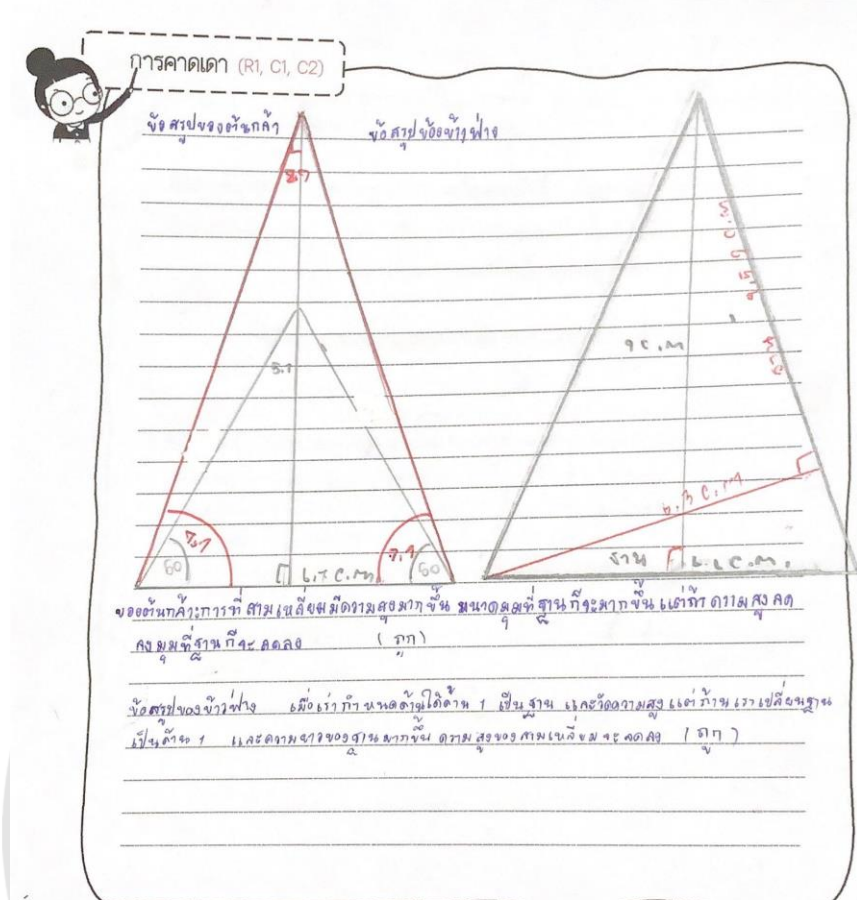 การคาดเดา (R1, C1, C2)
ข้อสรุปของต้นกล้า
ข้อสรุปของข้าวฟ่าง
5.1
60
60
6.7 c.m
9 c.m
6.3 c.m
ฐาน 6.6 c.m.
ของต้นกล้า:การที่สามเหลี่ยมมีความสูงมากขึ้น ขนาดมุมที่ฐานก็จะมากขึ้น แต่ถ้าความสูงลด
ลงมุมที่ฐานก็จะลดลง (ถูก)
ข้อสรุปของข้าวฟ่าง เมื่อเรากำหนดด้านใดด้าน 1 เป็นฐาน และวัดความสูง แต่ถ้าเราเปลี่ยนฐาน
เป็นด้าน 1 และความยาวของฐานมากขึ้น ความสูงของสามเหลี่ยมจะลดลง (ถูก)